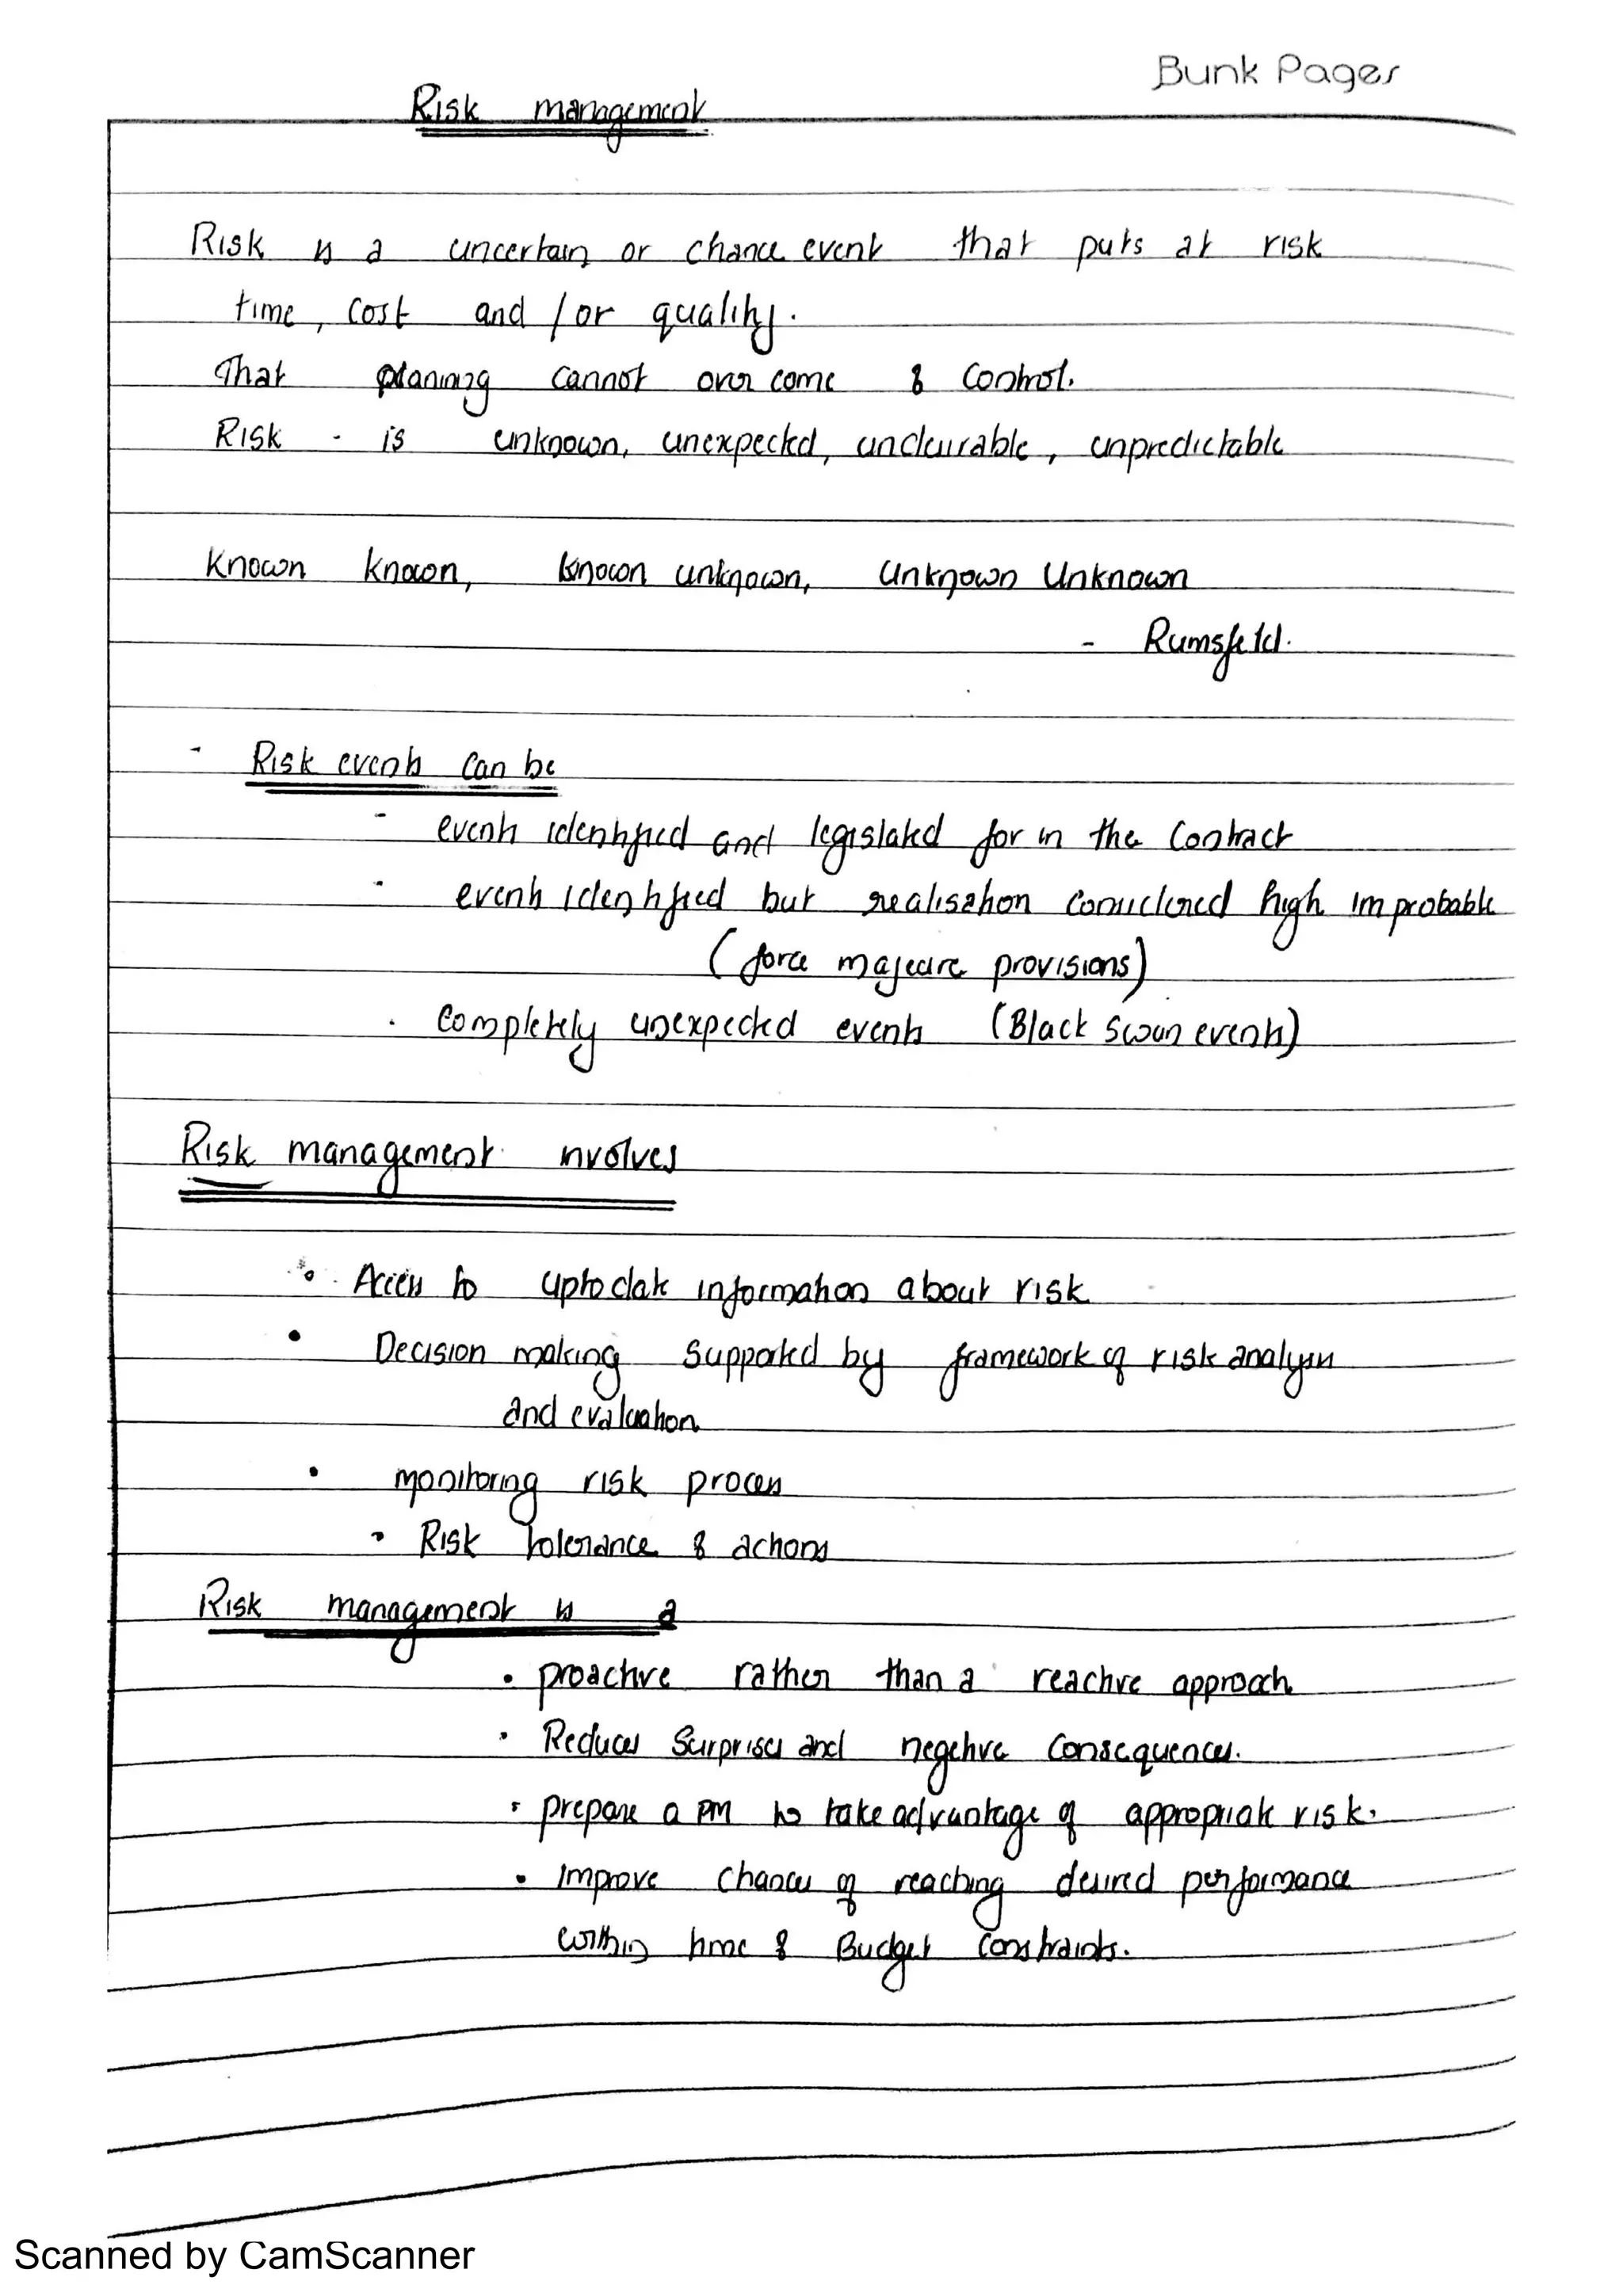 Bunk Pages
Risk management
Risk is a uncertain or chance event that puts at risk
time, cost and / or quality.
That planing cannot over come & control.
Risk - is unknown, unexpected, undesirable, unpredictable
Known known, known unknown, Unknown Unknown
- Rumsfeld.
- Risk events can be
- events identified and legislated for in the Contract
- events identified but realisation considered high improbable
(force majeure provisions)
. Completely unexpected events (Black swan events)
Risk management involves
• Access to upto date information about risk
• Decision making supported by framework of risk analysis
and evaluation
• monitoring risk process
• Risk tolerance & actions
Risk management is a
• proactive rather than a reactive approach
• Reduces Surprises and negetive consequences.
• prepare a PM to take advantage of appropriate risk.
• Improve chances of reaching desired performance
within time & Budget constraints.
Scanned by CamScanner